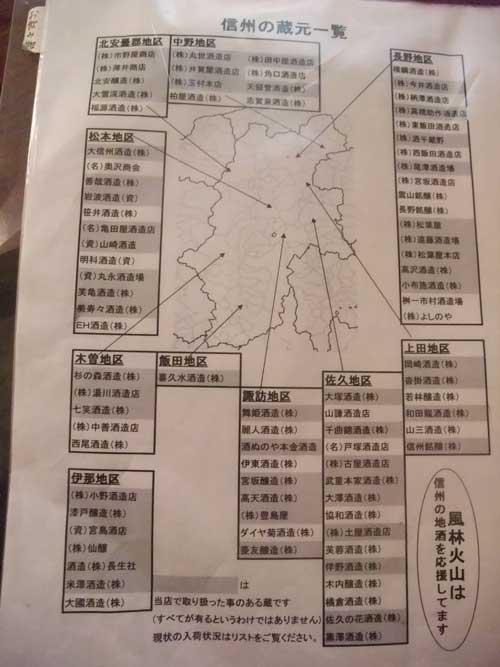 信州の蔵元一覧
北安曇郡地区
(株)市野屋商店
(株)薄井商店
北安醸造(株)
大雪渓酒造(株)
福源酒造(株)
中野地区
(株)丸世酒造店
(株)井賀屋酒造店
(株)玉村本店
柏屋酒造(株)
(株)田中屋酒造店
(株)角口酒造店
天領誉酒造(株)
志賀泉酒造(株)
長野地区
横綱酒造(株)
(株)今井酒造店
(株)柄澤酒造店
(株)高橋助作酒造店
(株)東飯田酒造店
(株)酒千蔵野
(株)西飯田酒造店
(株)尾澤酒造場
(株)宮坂酒造店
雲山銘醸(株)
長野銘醸(株)
(株)松葉屋
(株)遠藤酒造場
(株)松葉屋本店
高沢酒造(株)
小布施酒造(株)
桝一市村酒造場
(株)よしのや
松本地区
大信州酒造(株)
(名)奥沢商会
善哉酒造(株)
岩波酒造(資)
笹井酒造(株)
(名)亀田屋酒造店
(資)山崎酒造
明科酒造(資)
(資)丸永酒造場
笑亀酒造(株)
美寿々酒造(株)
EH酒造(株)
木曽地区
杉の森酒造(株)
(株)湯川酒造店
七笑酒造(株)
(株)中善酒造店
西尾酒造(株)
飯田地区
喜久水酒造(株)
諏訪地区
舞姫酒造(株)
麗人酒造(株)
酒ぬのや本金酒造
伊東酒造(株)
宮坂醸造(株)
高天酒造(株)
(株)豊島屋
ダイヤ菊酒造(株)
菱友醸造(株)
佐久地区
大塚酒造(株)
山謙酒造店
千曲錦酒造(株)
(名)戸塚酒造店
(株)古屋酒造店
武重本家酒造(株)
大澤酒造(株)
協和酒造(株)
(株)土屋酒造店
芙蓉酒造(株)
伴野酒造(株)
木内醸造(株)
橘倉酒造(株)
佐久の花酒造(株)
黒澤酒造(株)
上田地区
岡崎酒造(株)
沓掛酒造(株)
若林醸造(株)
和田龍酒造(株)
山三酒造(株)
信州銘醸(株)
伊那地区
(株)小野酒造店
漆戸醸造(株)
(資)宮島酒店
(株)仙醸
酒造(株)長生社
米澤酒造(株)
大國酒造(株)
は
当店で取り扱った事のある蔵です
(すべてが有るというわけではありません)
現状の入荷状況はリストをご覧ください。
風林火山は
信州の地酒を応援してます